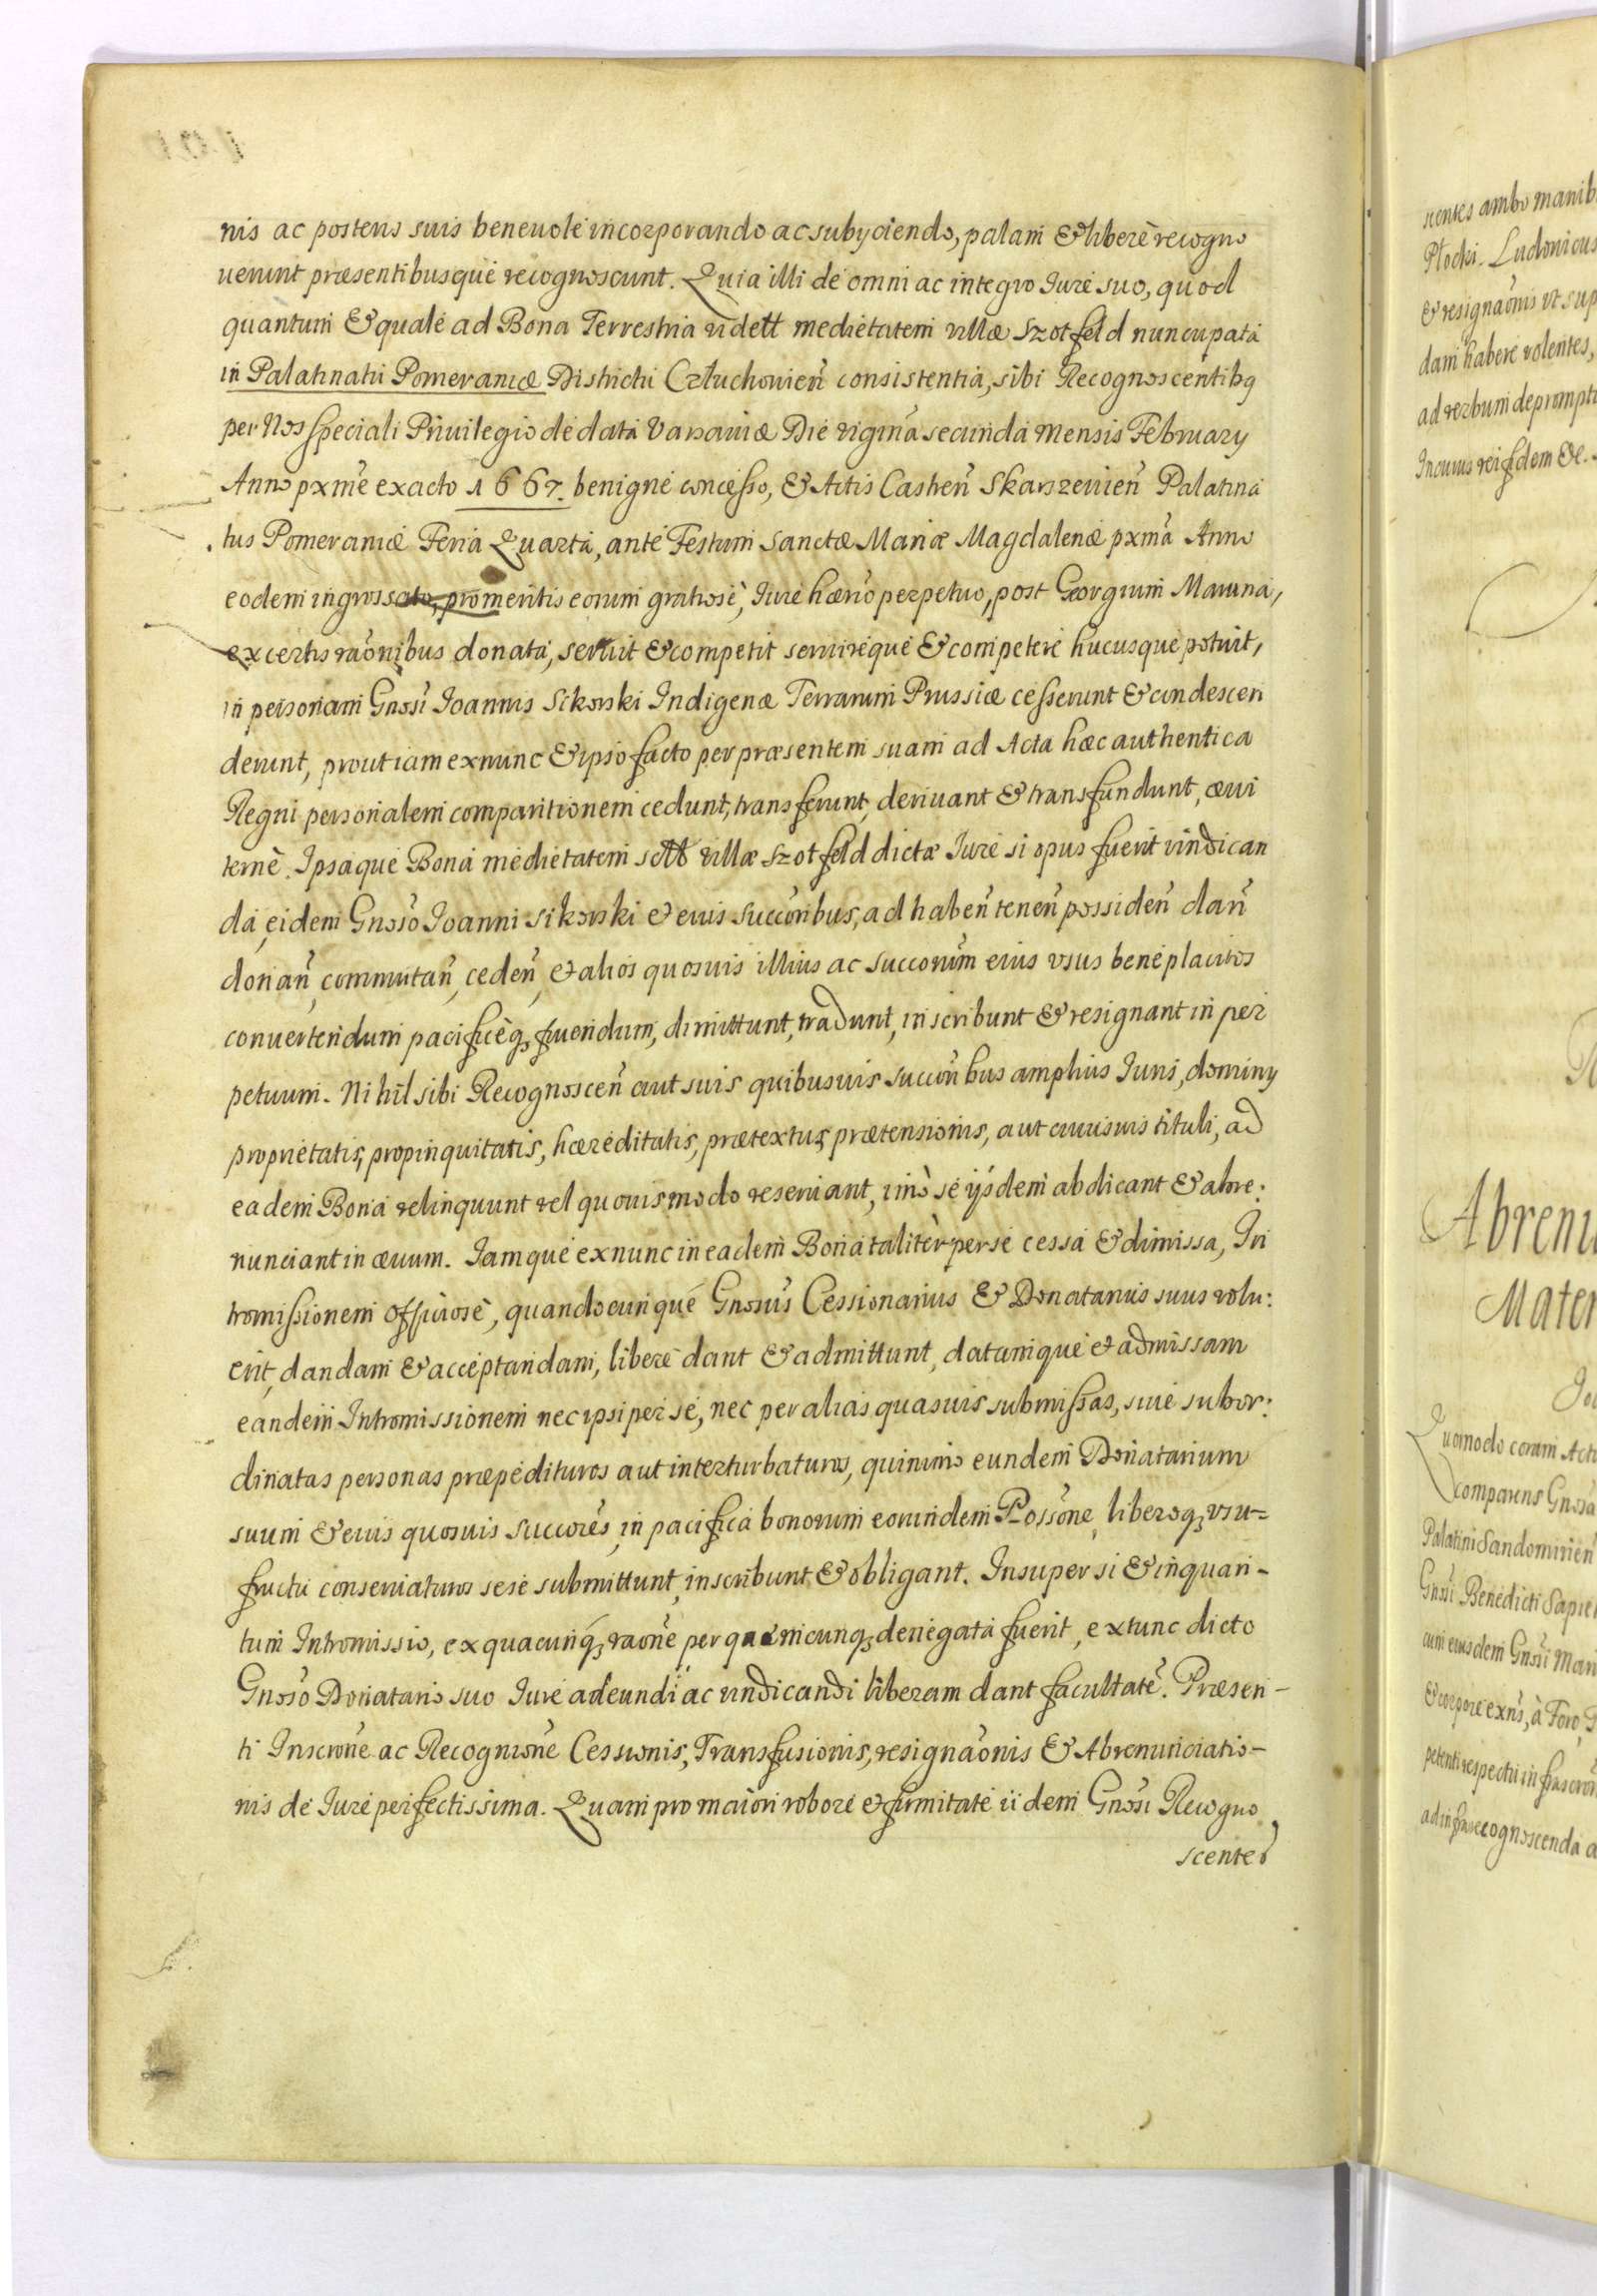 nis ac posteris suis beneuole incorporando ac subyciendo, palam & libere recogno
uerunt præsentibusque recognoscunt. Quia illi de omni ac integro Iure suo, quod
quantum & quale ad Bona Terrestria vidett medietatem villæ Szotfeld nuncupata
in Palatinatu Pomeraniæ Districtu Człuchouien̄ consistentia, sibi Recognoscentibq
per Nos speciali Priuilegio de data Varsauiæ Die vigmā secunda Mensis February
Anno pxmē exacto 1667. benigne concesso, & Actis Castren̄ Skarszeuien̄ Palatina
tus Pomeraniæ Feria Quarta, ante Festum Sanctæ Mariæ Magdalenæ pxmā Anno
eodem ingrossato, pro meritis eorum gratiose, Iure hærio perpetuo, post Georgium Maruna,
ex certis raōnibus donata, seruit & competit seruireque & competere hucusque potuit,
in personam Gnosi Ioannis Sikorski Indigenæ Terrarum Prussiæ cesserunt & condescen
derunt, prout iam exnunc & ipso facto per præsentem suam ad Acta hæc authentica
Regni personalem comparitionem cedunt, transferunt, deriuant & transfundunt, æui
ternè. Ipsaque Bona medietatem sctt villæ Szotfeld dictæ Iure si opus fuerit vindican
da, eidem Gnoso Ioanni Sikorski et eius succoribus, ad haben̄ tenen̄ possiden̄ dan̄
donan̄, commutan̄, ceden̄, et alios quosuis illius ac succorum eius vsus beneplacitos
conuertendum pacificèq, fruendum, dimittunt, tradunt, inscribunt & resignant in per
petuum. Nihil sibi Recognoscen̄ aut suis quibusuis succoribus amplius Iuris, dominy
proprietatis, propinquitatis, hæreditatis, prætextus, prætensionis, aut cuiusuis tituli, ad
eadem Bona relinquunt vel quouismodo reseruant, imò se ijsdem abdicant & abre:
nunciant in æuum. Iamque exnunc in eadem Bona taliter per se cessa & dimissa, In
tromissionem officiosè, quandocunque Gnosus Cessionarius & Donatarius suus volu:
erit, dandam & acceptandam, libere dant & admittunt, datamque et admissam
eandem Intromissionem nec ipsi per se, nec per alias quasuis submissas, siue subor:
dinatas personas præpedituros aut interturbaturos, quinimo eundem Donatarium
suum & eius quosuis succores, in pacifica bonorum eorundem Possone, liberoq, vsu=
fructu conseruaturos sese submittunt, inscribunt & obligant. Insuper si & inquan-
tum Intromissio, ex quacunq, raone per quemcunq, denegata fuerit, extunc dicto
Gnoso Donatario suo Iure adeundi ac vindicandi liberam dant facultatē. Præsen-
ti Inscrone ac Recognione Cessionis, Transfusionis, resignaonis & Abrenunciatio-
nis de Iure perfectissima. Quam pro maiori robore et firmitate iidem Gnosi Recogno
scentes
scentes ambo manib
Płocki. Ludouicus
& resignaonis vt sup
dam habere volentes,
ad verbum deprompt
In cuius rei fidem &c.
Abrenu
Mater
Quomodo coram Acti
comparens Gnosa
Palatini Sandomirien̄
Gnosi Benedicti Sapie
cum eiusdem Gnosi Mari
& corpore exns, à Foro
petenti respectu infrascrōn
ad infra recognoscenda a